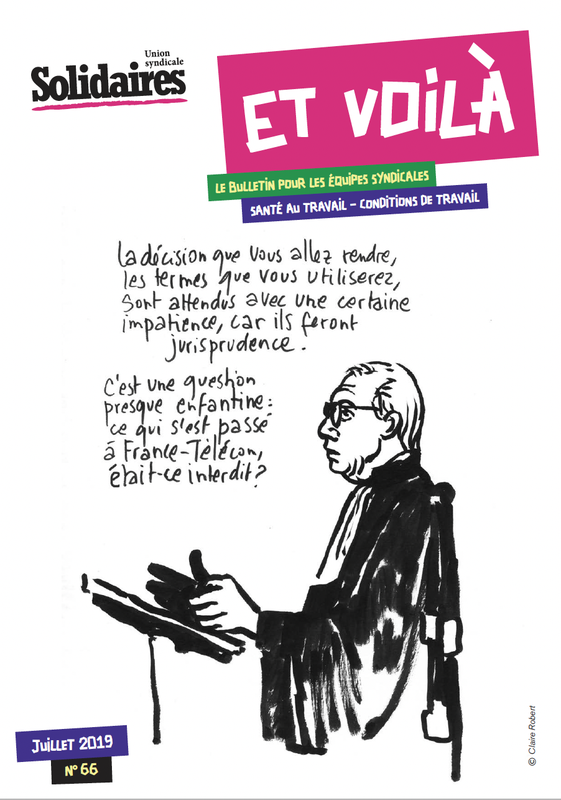 Union
syndicale
Solidaires
ET VOILÀ
LE BULLETIN POUR LES ÉQUIPES SYNDICALES
SANTÉ AU TRAVAIL – CONDITIONS DE TRAVAIL
La décision que vous allez rendre,
les termes que vous utiliserez,
sont attendus avec une certaine
impatience, car ils feront
jurisprudence.
C'est une question
presque enfantine :
ce qui s'est passé
à France-Télécom,
était-ce interdit ?
© Claire Robert
JUILLET 2019
N° 66